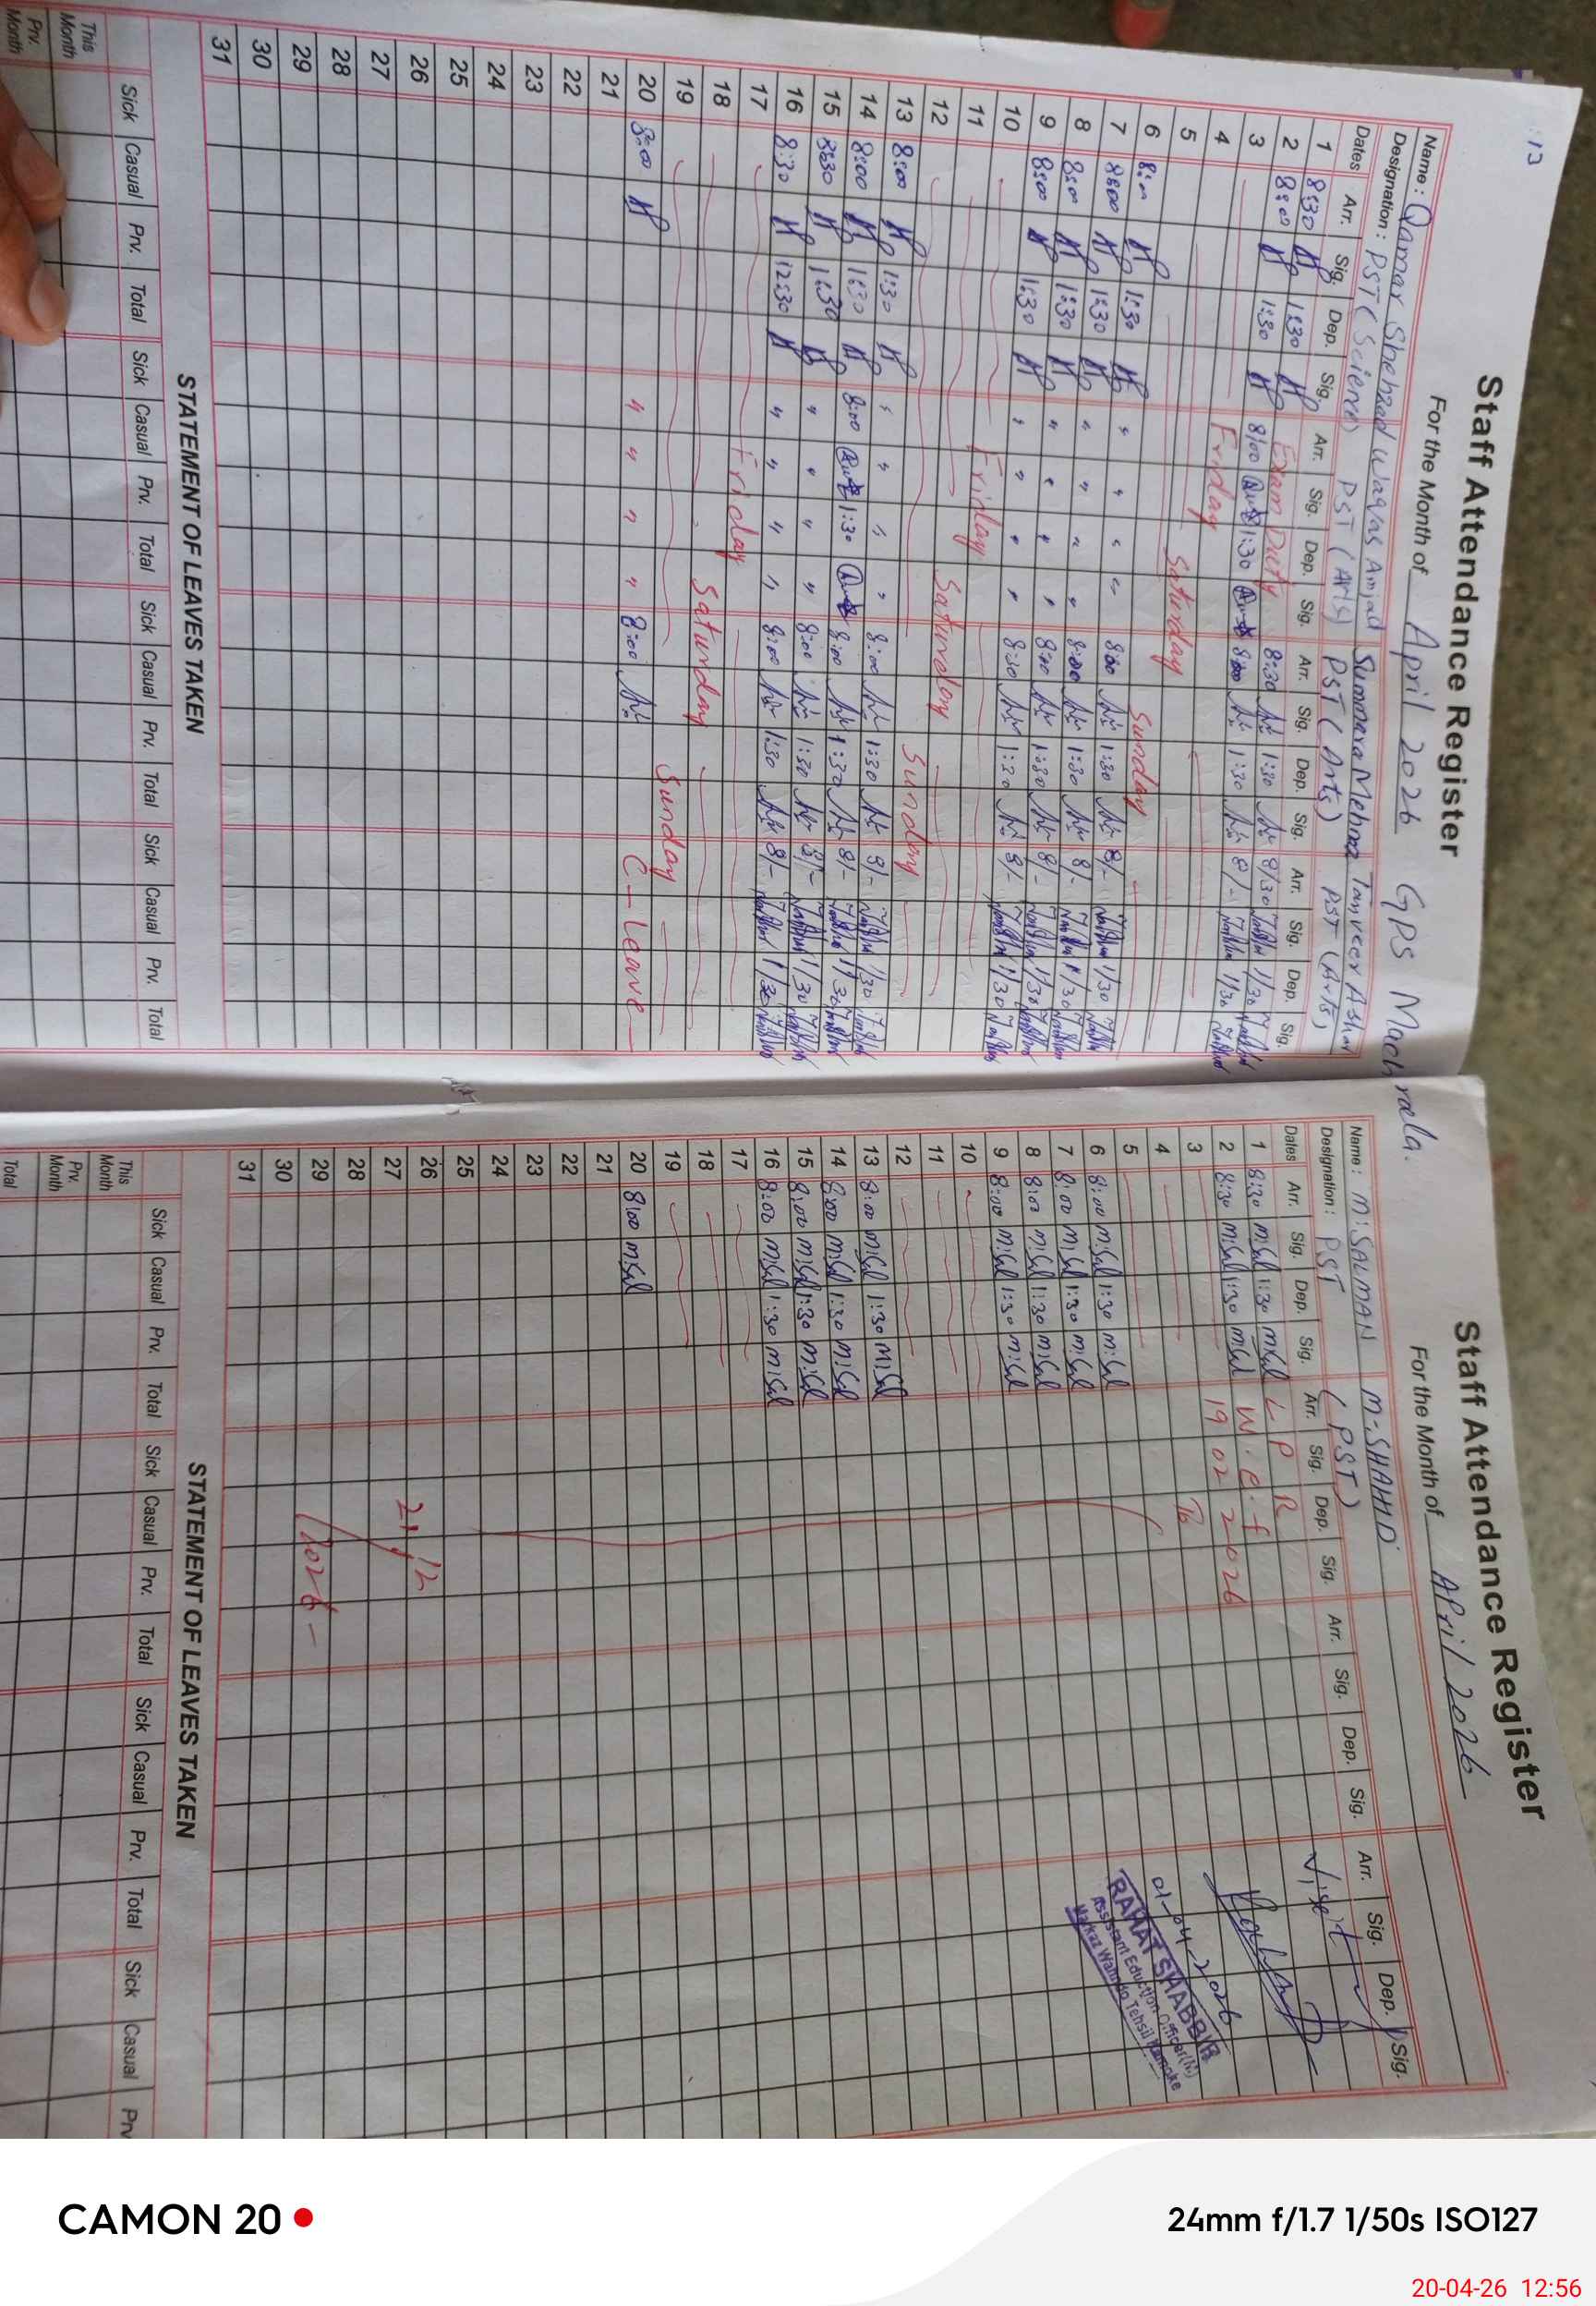 :13
Staff Attendance Register
For the Month of April 2026 GPS Machraela.
Name: Qamar Shehzad Waqas Amjad Summara Mehnaz Tanveer Ashar
Designation: PST (Science) PST (Arts) PST (Arts) PST (Arts)
Dates Arr. Sig. Dep. Sig. Arr. Sig. Dep. Sig. Arr. Sig. Dep. Sig. Arr. Sig. Dep. Sig.
1 8:30 1:30 Exam Duty 8:30 1:30 8/30 1/30
2 8:00 1:30 8:00 1:30 8:00 1:30 8/- 1/30
3 Friday
4 Saturday
5 Sunday
6 8:00 1:30 " " " " 8:00 1:30 8/- 1/30
7 8:00 1:30 " " " " 8:00 1:30 8/- 1/30
8 8:00 1:30 " " " " 8:00 1:30 8/- 1/30
9 8:00 1:30 " " " " 8:30 1:30 8/- 1/30
10 Friday
11 Saturday
12 Sunday
13 8:00 1:30 " " " " 8:00 1:30 8/- 1/30
14 8:00 1:30 8:00 1:30 8:00 1:30 8/- 1/30
15 8:30 1:30 " " " " 8:00 1:30 8/- 1/30
16 8:30 12:30 " " " " 8:00 1:30 8/- 1/30
17 Friday
18 Saturday
19 Sunday
20 8:00 " " " " 8:00 C-Leave
21
22
23
24
25
26
27
28
29
30
31
STATEMENT OF LEAVES TAKEN
Sick Casual Prv. Total Sick Casual Prv. Total Sick Casual Prv. Total Sick Casual Prv. Total
This Month
Prv. Month
Staff Attendance Register
For the Month of APril 2026
Name: M:SALMAN M:SHAHID
Designation: PST (PST)
Dates Arr. Sig. Dep. Sig. Arr. Sig. Dep. Sig. Arr. Sig. Dep. Sig. Arr. Sig. Dep. Sig.
1 8:30 M:Sal 1:30 M:Sal L P R
2 8:30 M:Sal 1:30 M:Sal W.e.f
3 19 02 2026
4 To
5
6 8:00 M:Sal 1:30 M:Sal
7 8:00 M:Sal 1:30 M:Sal
8 8:00 M:Sal 1:30 M:Sal
9 8:00 M:Sal 1:30 M:Sal
10
11
12
13 8:00 M:Sal 1:30 M:Sal
14 8:00 M:Sal 1:30 M:Sal
15 8:00 M:Sal 1:30 M:Sal
16 8:00 M:Sal 1:30 M:Sal
17
18
19
20 8:00 M:Sal
21
22
23
24
25
26
27
28
29
30
31
21/12
/2026-
Visit
01-04-2026
RAHAT SHABBIR
Assistant Eduction Officer(M)
Markaz Wahndo Tehsil Kamoke
STATEMENT OF LEAVES TAKEN
Sick Casual Prv. Total Sick Casual Prv. Total Sick Casual Prv. Total Sick Casual Prv
This Month
Prv. Month
Total
CAMON 20
24mm f/1.7 1/50s ISO127
20-04-26 12:56